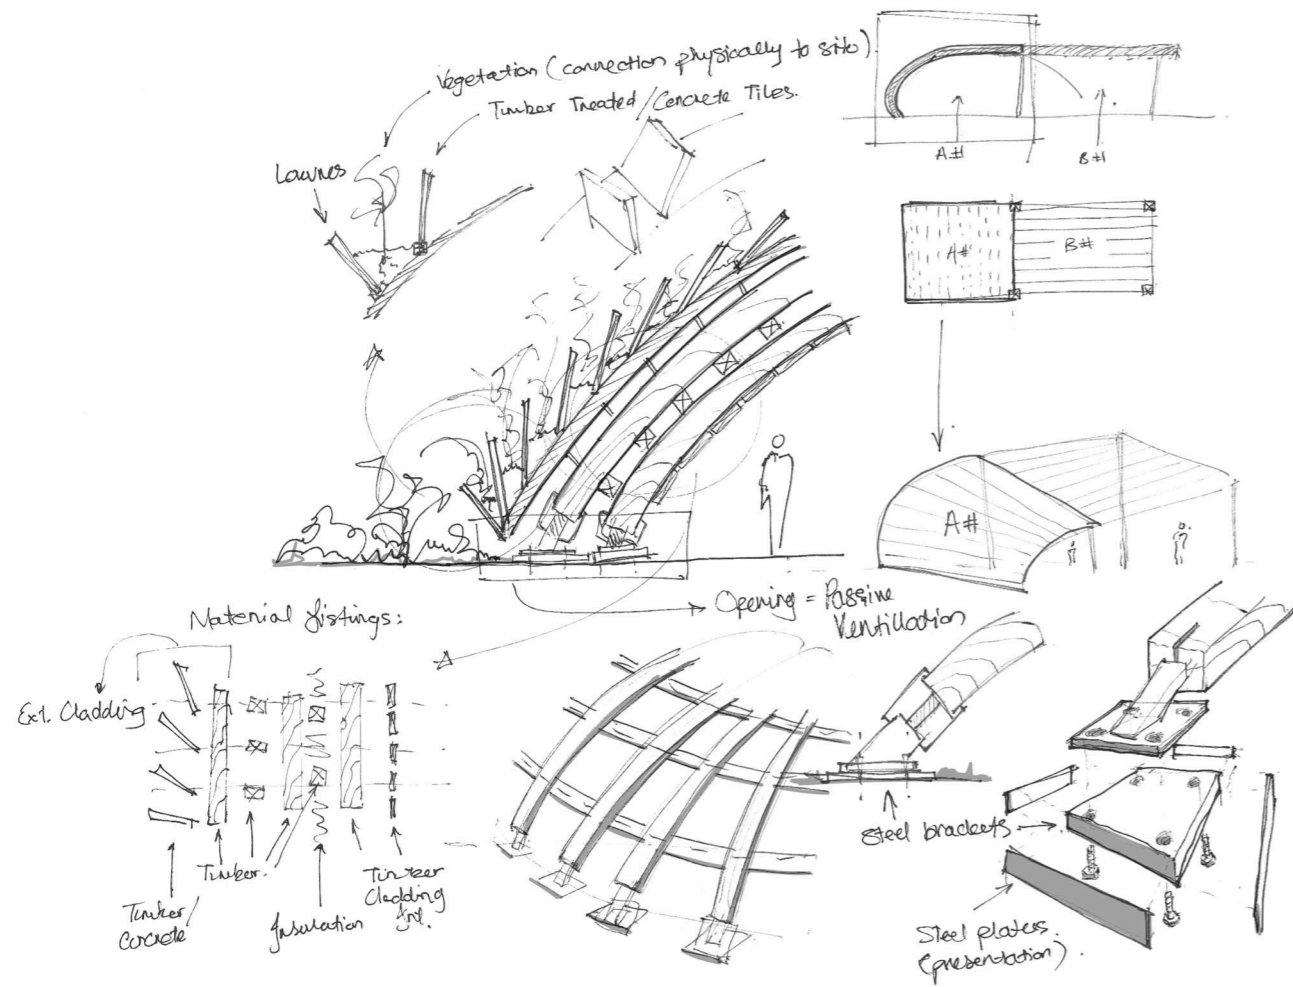 Vegetation (connection physically to site).
Timber Treated / Concrete Tiles.
Louvres
A#
B#
A#
B#
A#
Opening = Passive
Ventillation
Material Listings:
Ext. Cladding
Timber.
Timber/
Concrete
Insulation
Timber
Cladding
Int.
Steel brackets
Steel plates.
(presentation).